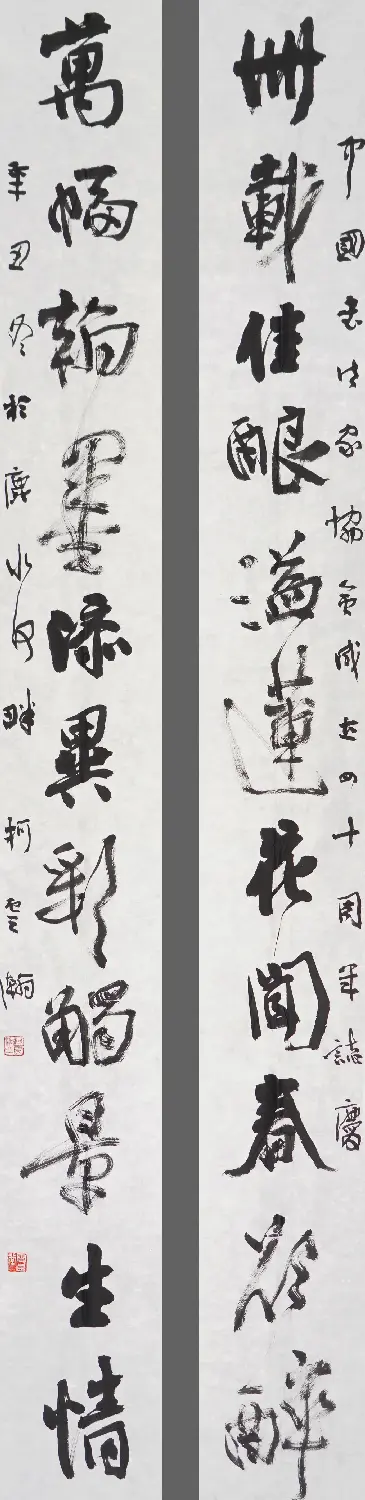 中國书法家協會成立四十周年誌慶
卌載佳酿溢蓮花聞春欲醉
萬幅翰墨添異彩觸景生情
辛丑冬於鹿水河畔 柯雲瀚